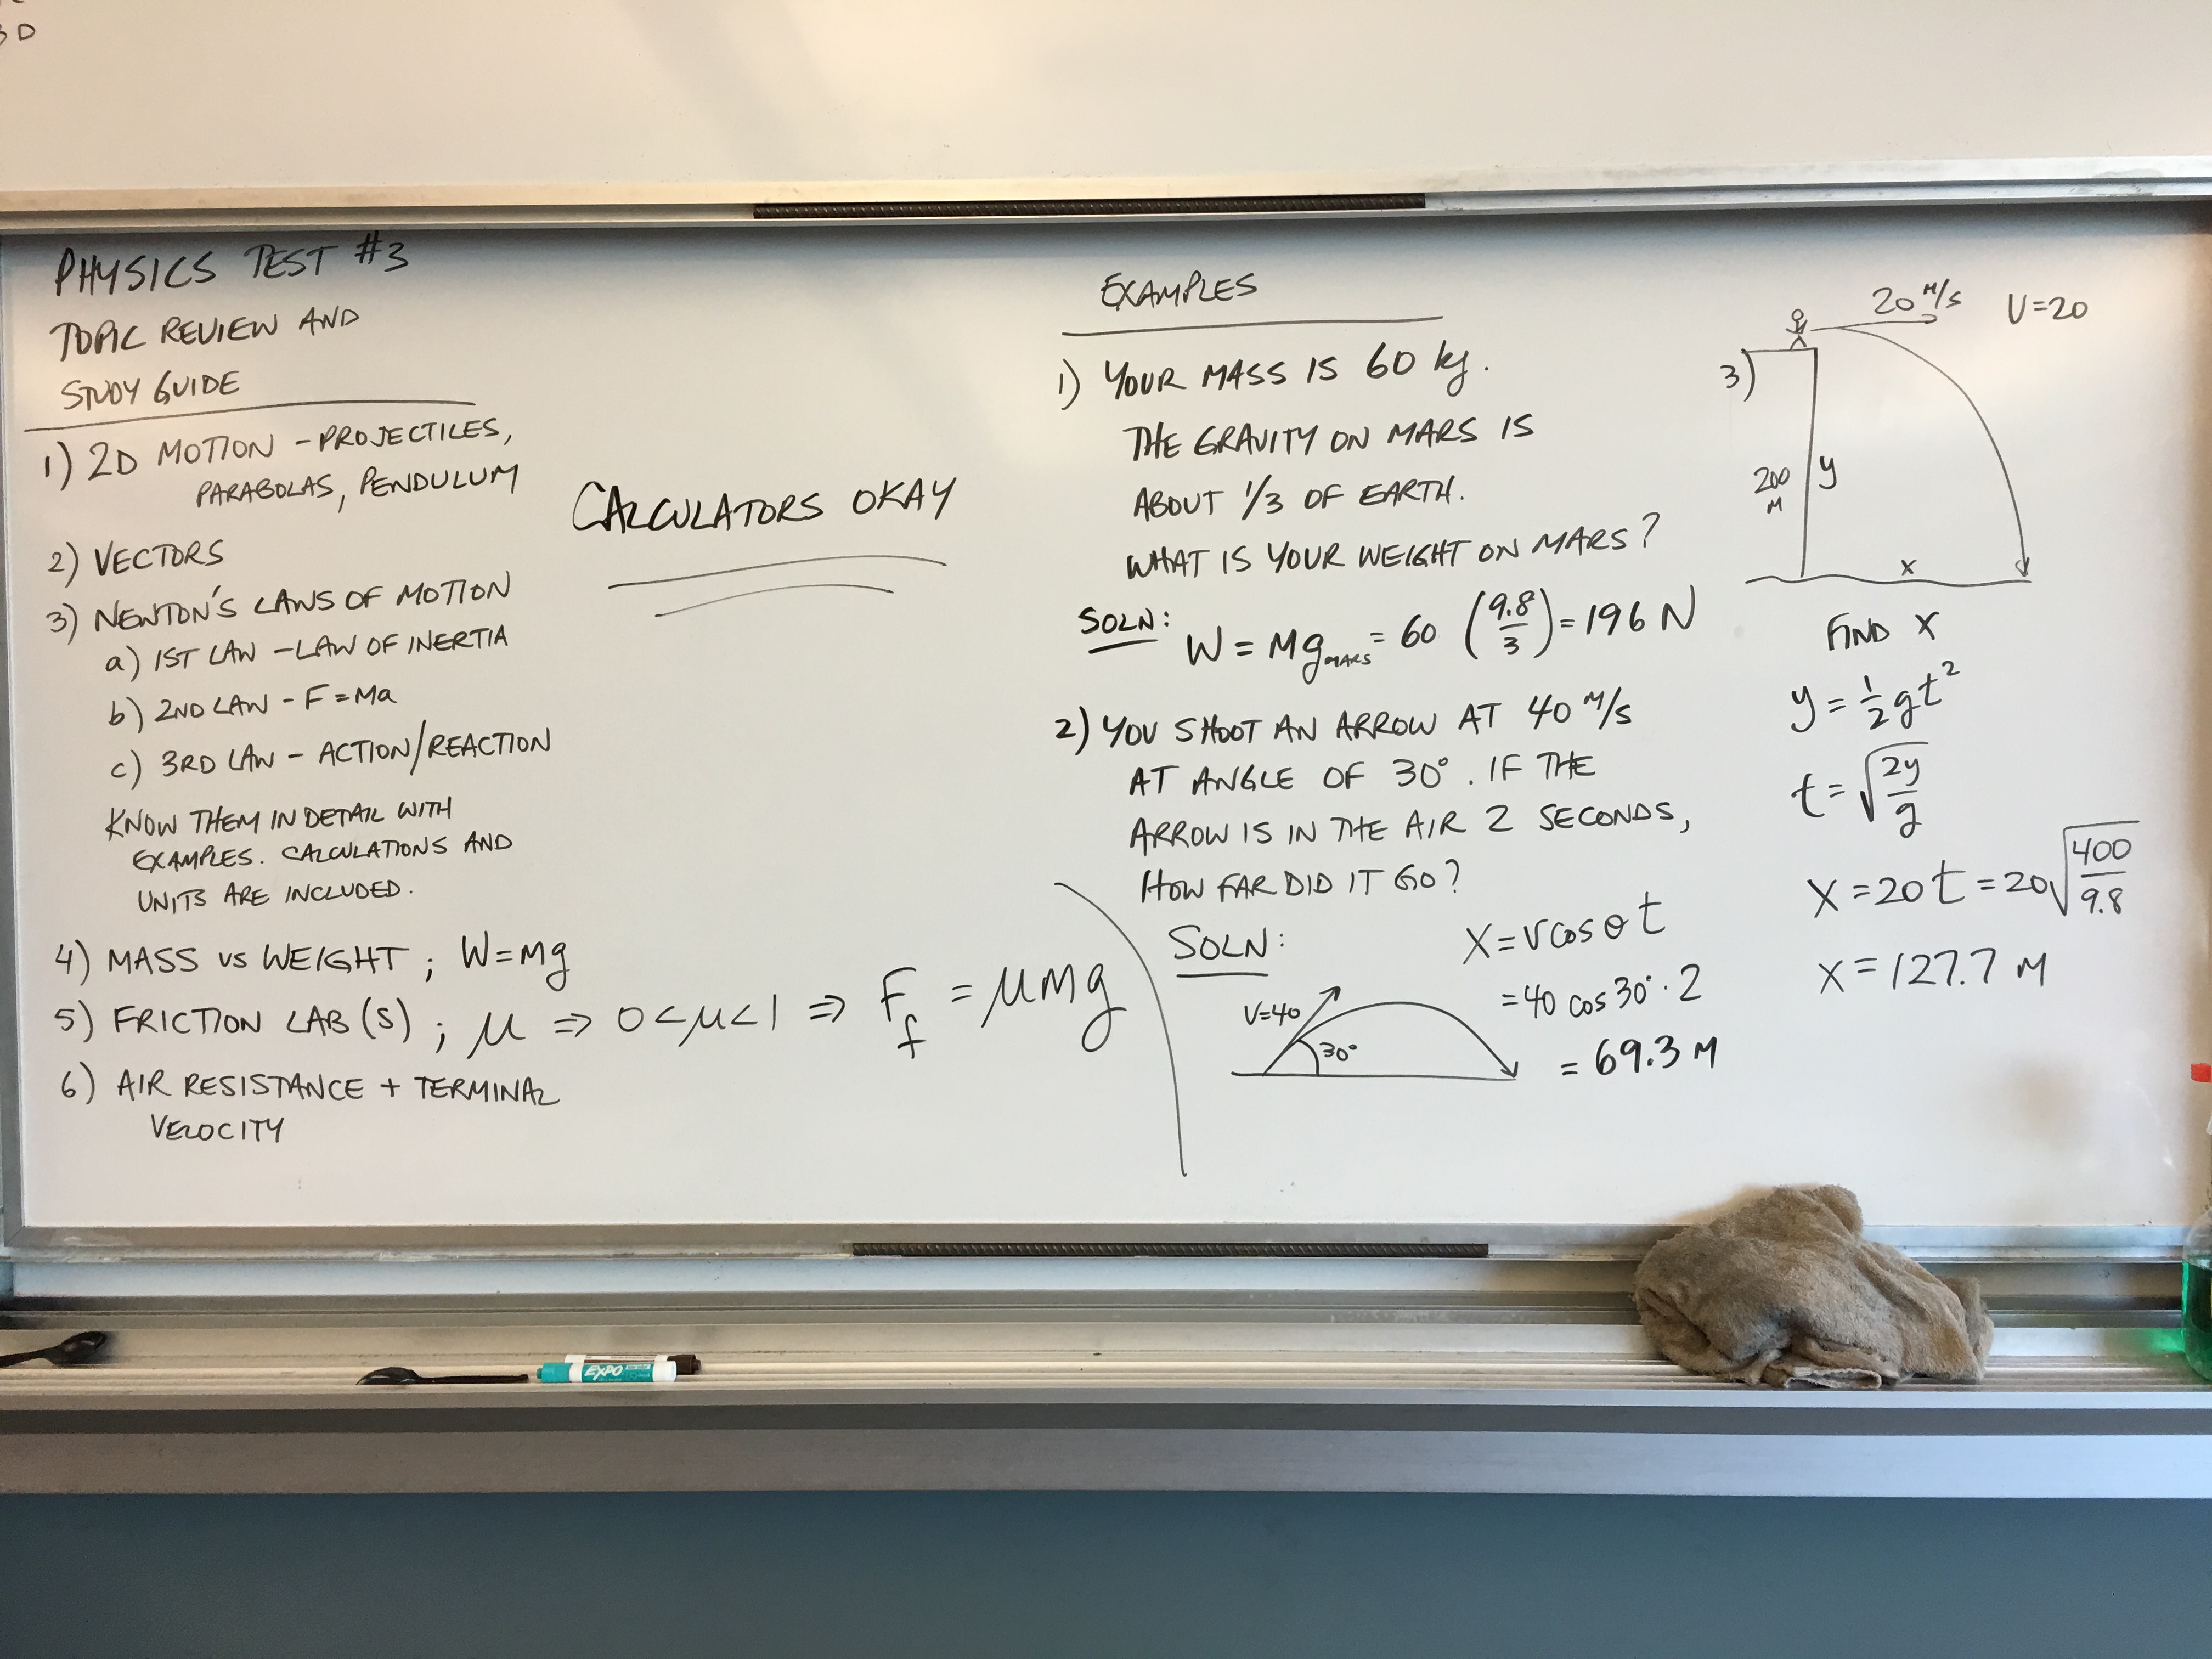 3D
PHYSICS TEST #3
TOPIC REVIEW AND
STUDY GUIDE
1) 2D MOTION - PROJECTILES,
PARABOLAS, PENDULUM
2) VECTORS
3) NEWTON'S LAWS OF MOTION
a) 1ST LAW - LAW OF INERTIA
b) 2ND LAW - F = Ma
c) 3RD LAW - ACTION/REACTION
KNOW THEM IN DETAIL WITH
EXAMPLES. CALCULATIONS AND
UNITS ARE INCLUDED.
4) MASS VS WEIGHT ; W = Mg
5) FRICTION LAB(S) ; μ ⇒ 0<μ<1 ⇒ F_f = μMg
6) AIR RESISTANCE + TERMINAL
VELOCITY
CALCULATORS OKAY
EXAMPLES
1) YOUR MASS IS 60 kg.
THE GRAVITY ON MARS IS
ABOUT 1/3 OF EARTH.
WHAT IS YOUR WEIGHT ON MARS?
SOLN: W = Mg_MARS = 60 (9.8/3) = 196 N
2) YOU SHOOT AN ARROW AT 40 M/S
AT ANGLE OF 30°. IF THE
ARROW IS IN THE AIR 2 SECONDS,
HOW FAR DID IT GO?
SOLN:
V=40
30°
X = V COS θ t
= 40 COS 30° · 2
= 69.3 M
3)
20 M/S V=20
200 M
y
x
FIND X
y = 1/2 gt²
t = √(2y/g)
X = 20t = 20√(400/9.8)
X = 127.7 M
EXPO